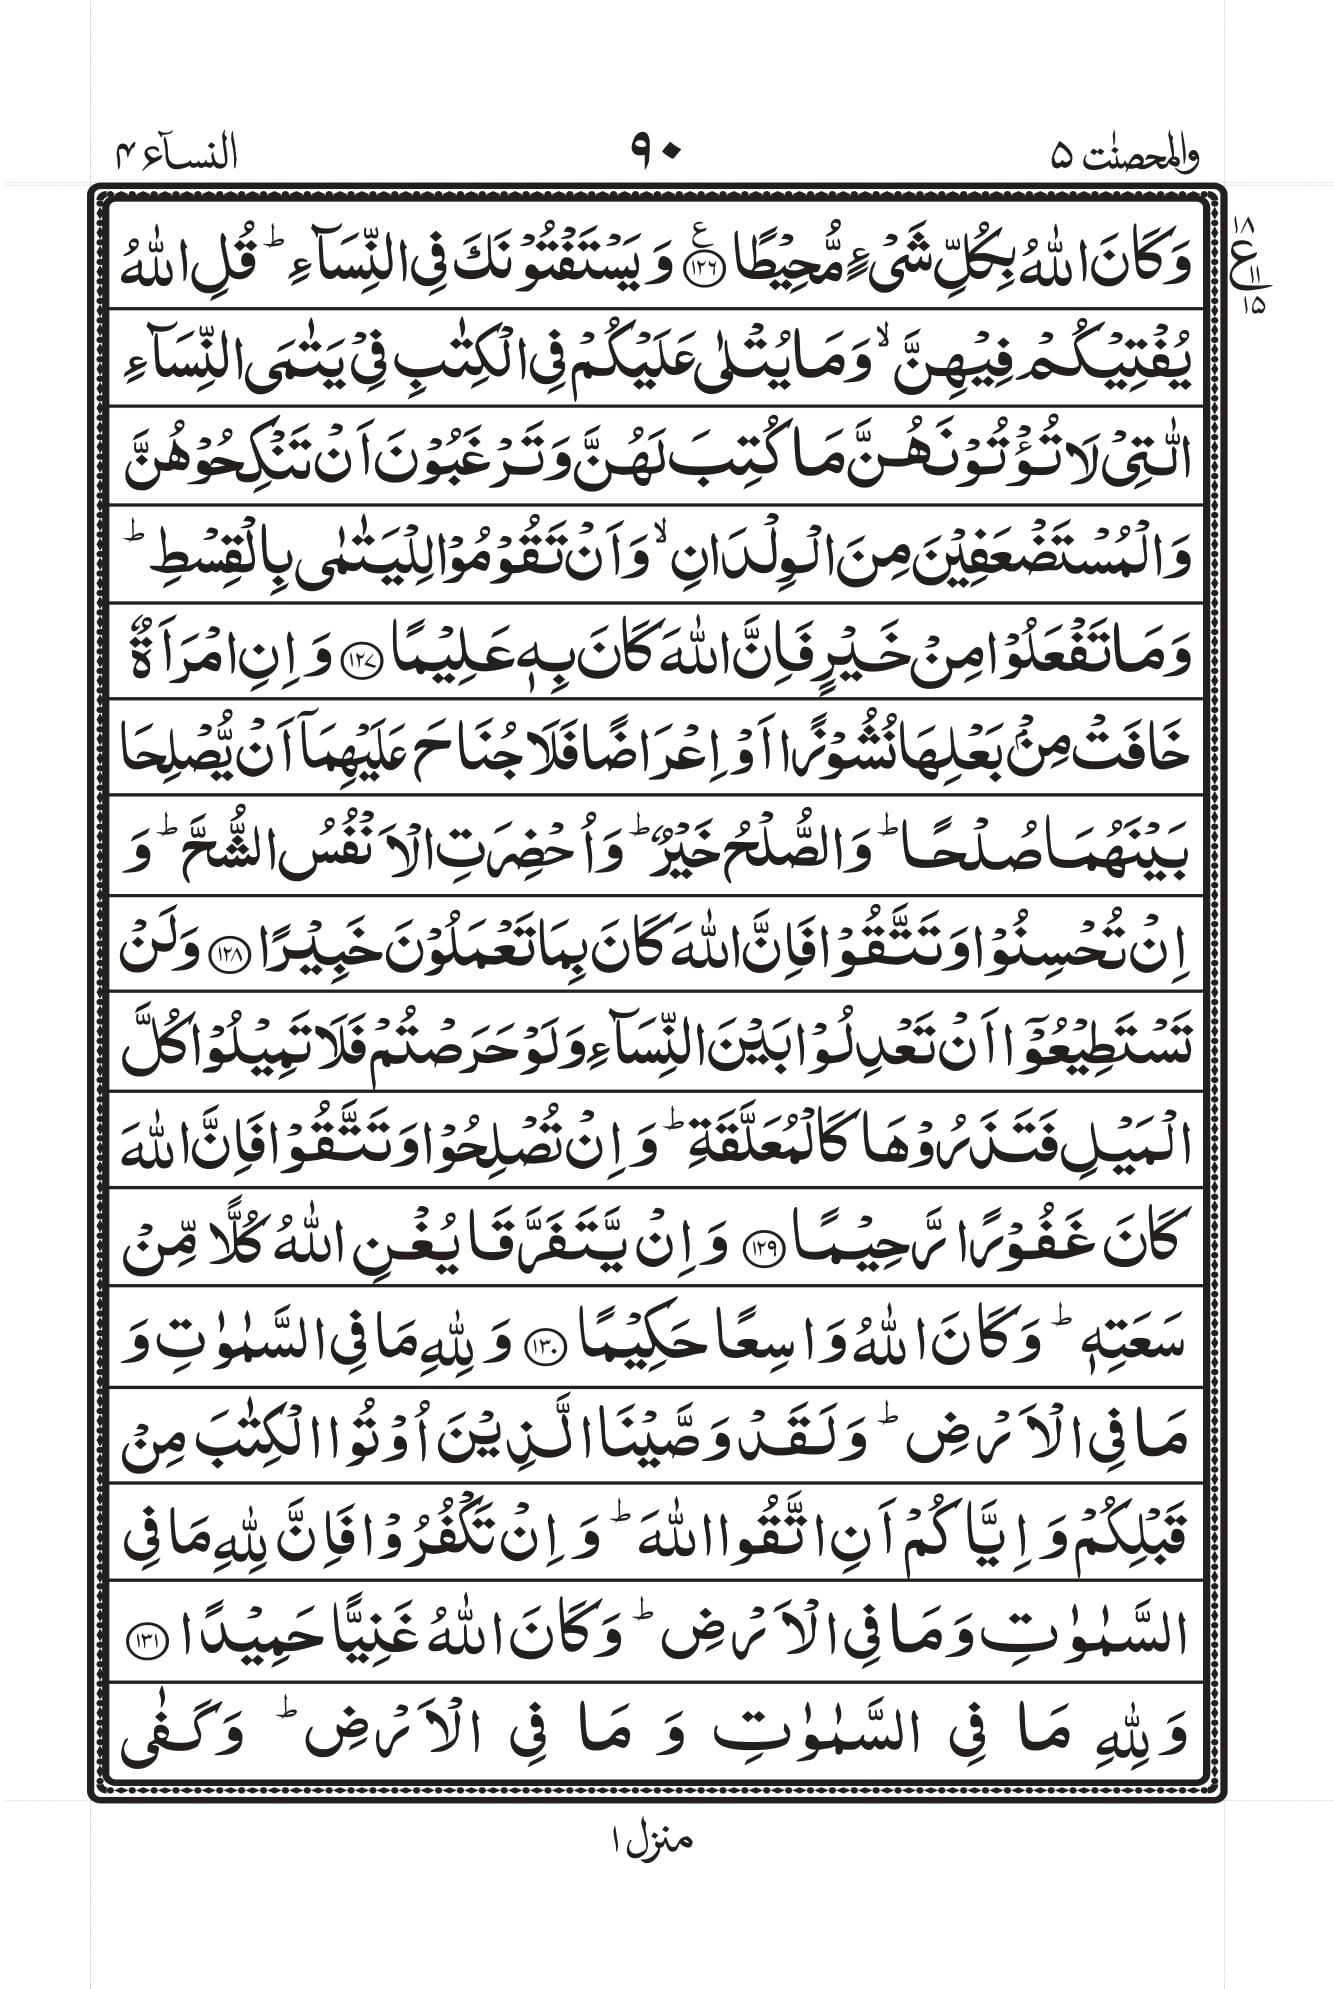 والمحصنٰت ۵ ۹۰ النسآء ۴
وَكَانَ اللّٰهُ بِكُلِّ شَیْءٍ مُّحِیْطًا ۧ﴿۱۲۶﴾ وَیَسْتَفْتُوْنَكَ فِی النِّسَآءِ ؕ قُلِ اللّٰهُ
۱۸ ع ۱۱ ۱۵
یُفْتِیْكُمْ فِیْهِنَّ ۙ وَمَا یُتْلٰی عَلَیْكُمْ فِی الْكِتٰبِ فِیْ یَتٰمَی النِّسَآءِ
الّٰتِیْ لَا تُؤْتُوْنَهُنَّ مَا كُتِبَ لَهُنَّ وَتَرْغَبُوْنَ اَنْ تَنْكِحُوْهُنَّ
وَالْمُسْتَضْعَفِیْنَ مِنَ الْوِلْدَانِ ۙ وَاَنْ تَقُوْمُوْا لِلْیَتٰمٰی بِالْقِسْطِ ؕ
وَمَا تَفْعَلُوْا مِنْ خَیْرٍ فَاِنَّ اللّٰهَ كَانَ بِهٖ عَلِیْمًا ﴿۱۲۷﴾ وَاِنِ امْرَاَةٌ
خَافَتْ مِنْۢ بَعْلِهَا نُشُوْزًا اَوْ اِعْرَاضًا فَلَا جُنَاحَ عَلَیْهِمَاۤ اَنْ یُّصْلِحَا
بَیْنَهُمَا صُلْحًا ؕ وَالصُّلْحُ خَیْرٌ ؕ وَاُحْضِرَتِ الْاَنْفُسُ الشُّحَّ ؕ وَ
اِنْ تُحْسِنُوْا وَتَتَّقُوْا فَاِنَّ اللّٰهَ كَانَ بِمَا تَعْمَلُوْنَ خَبِیْرًا ﴿۱۲۸﴾ وَلَنْ
تَسْتَطِیْعُوْۤا اَنْ تَعْدِلُوْا بَیْنَ النِّسَآءِ وَلَوْ حَرَصْتُمْ فَلَا تَمِیْلُوْا كُلَّ
الْمَیْلِ فَتَذَرُوْهَا كَالْمُعَلَّقَةِ ؕ وَاِنْ تُصْلِحُوْا وَتَتَّقُوْا فَاِنَّ اللّٰهَ
كَانَ غَفُوْرًا رَّحِیْمًا ﴿۱۲۹﴾ وَاِنْ یَّتَفَرَّقَا یُغْنِ اللّٰهُ كُلًّا مِّنْ
سَعَتِهٖ ؕ وَكَانَ اللّٰهُ وَاسِعًا حَكِیْمًا ﴿۱۳۰﴾ وَلِلّٰهِ مَا فِی السَّمٰوٰتِ وَ
مَا فِی الْاَرْضِ ؕ وَلَقَدْ وَصَّیْنَا الَّذِیْنَ اُوْتُوا الْكِتٰبَ مِنْ
قَبْلِكُمْ وَاِیَّاكُمْ اَنِ اتَّقُوا اللّٰهَ ؕ وَاِنْ تَكْفُرُوْا فَاِنَّ لِلّٰهِ مَا فِی
السَّمٰوٰتِ وَمَا فِی الْاَرْضِ ؕ وَكَانَ اللّٰهُ غَنِیًّا حَمِیْدًا ﴿۱۳۱﴾
وَلِلّٰهِ مَا فِی السَّمٰوٰتِ وَ مَا فِی الْاَرْضِ ؕ وَكَفٰی
منزل ۱